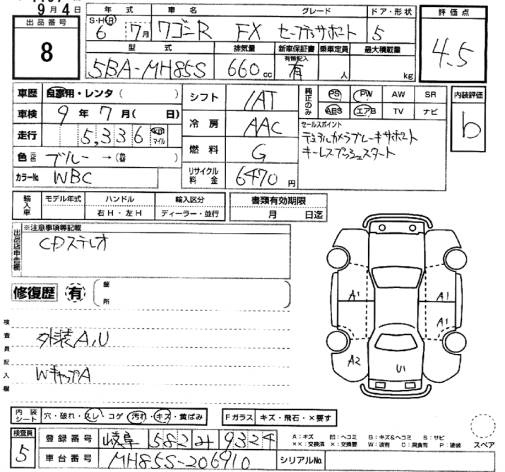 9月4日
出品番号
8
年式
S・H・R 6年 7月
車名
ワゴンR
グレード
FX セーフティサポート
ドア・形状
5
評価点
4.5
型式
5BA-MH85S
排気量
660cc
新車保証書
有
乗車定員
人
最大積載量
kg
車歴
自家用・レンタ( )
車検
9年 7月( 日)
走行
5,336
マイル
色
ブルー→( )
カラーNo
WBC
シフト
IAT
冷房
AAC
燃料
G
リサイクル料金
6470円
純正のみ
PS PW AW SR
ABS エアB TV ナビ
セールスポイント
デュアルカメラブレーキサポート
キーレスプッシュスタート
内装評価
b
輸入車
モデル年式
ハンドル
右H・左H
輸入区分
ディーラー・並行
書類有効期限
月 日迄
※注意事項等記載
CDステレオ
修復歴 有
箇所
検査員記入欄
外装A,U
WキャップA
A1
A1
A1
A2
U1
内装シート
穴・破れ・スレ・コゲ・汚れ・キズ・黄ばみ
Fガラス キズ・飛石・×要す
検査員
5
登録番号
岐阜 582 み 9324
車台番号
MH85S-206910
シリアルNo
A:キズ U:ヘコミ B:キズ&ヘコミ S:サビ
××:交換済 ×:要交換 W:波有 C:腐食有 P:塗装
スペア